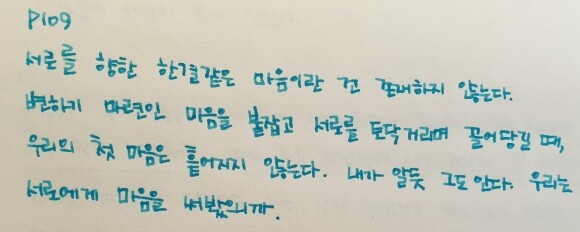 P109
서로를 향한 한결같은 마음이란 건 존재하지 않는다.
변하기 마련인 마음을 붙잡고 서로를 토닥거리며 끌어당길 때,
우리의 첫 마음은 흩어지지 않는다. 내가 알듯 그도 안다. 우리는
서로에게 마음을 써봤으니까.